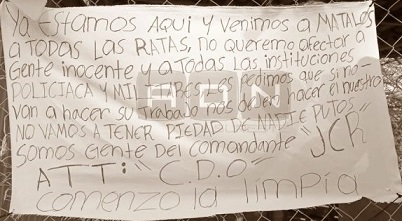 Ya EStamos AQui Y Venimos a MATALOS
a TODAS LAS RATAS, no queremo afectar a
Gente inocente y a Todas las instituciones
POLICIACA Y MILITARES LES pedimos que si no
Van a hacer su trabajo nos dejen hacer el nuestro
NO VAMOS A TENER PIEDAD DE NADIE PUTOS
Somos Gente Del comandante "JCR"
ATT: "C.D.O"
comenzo la limpia